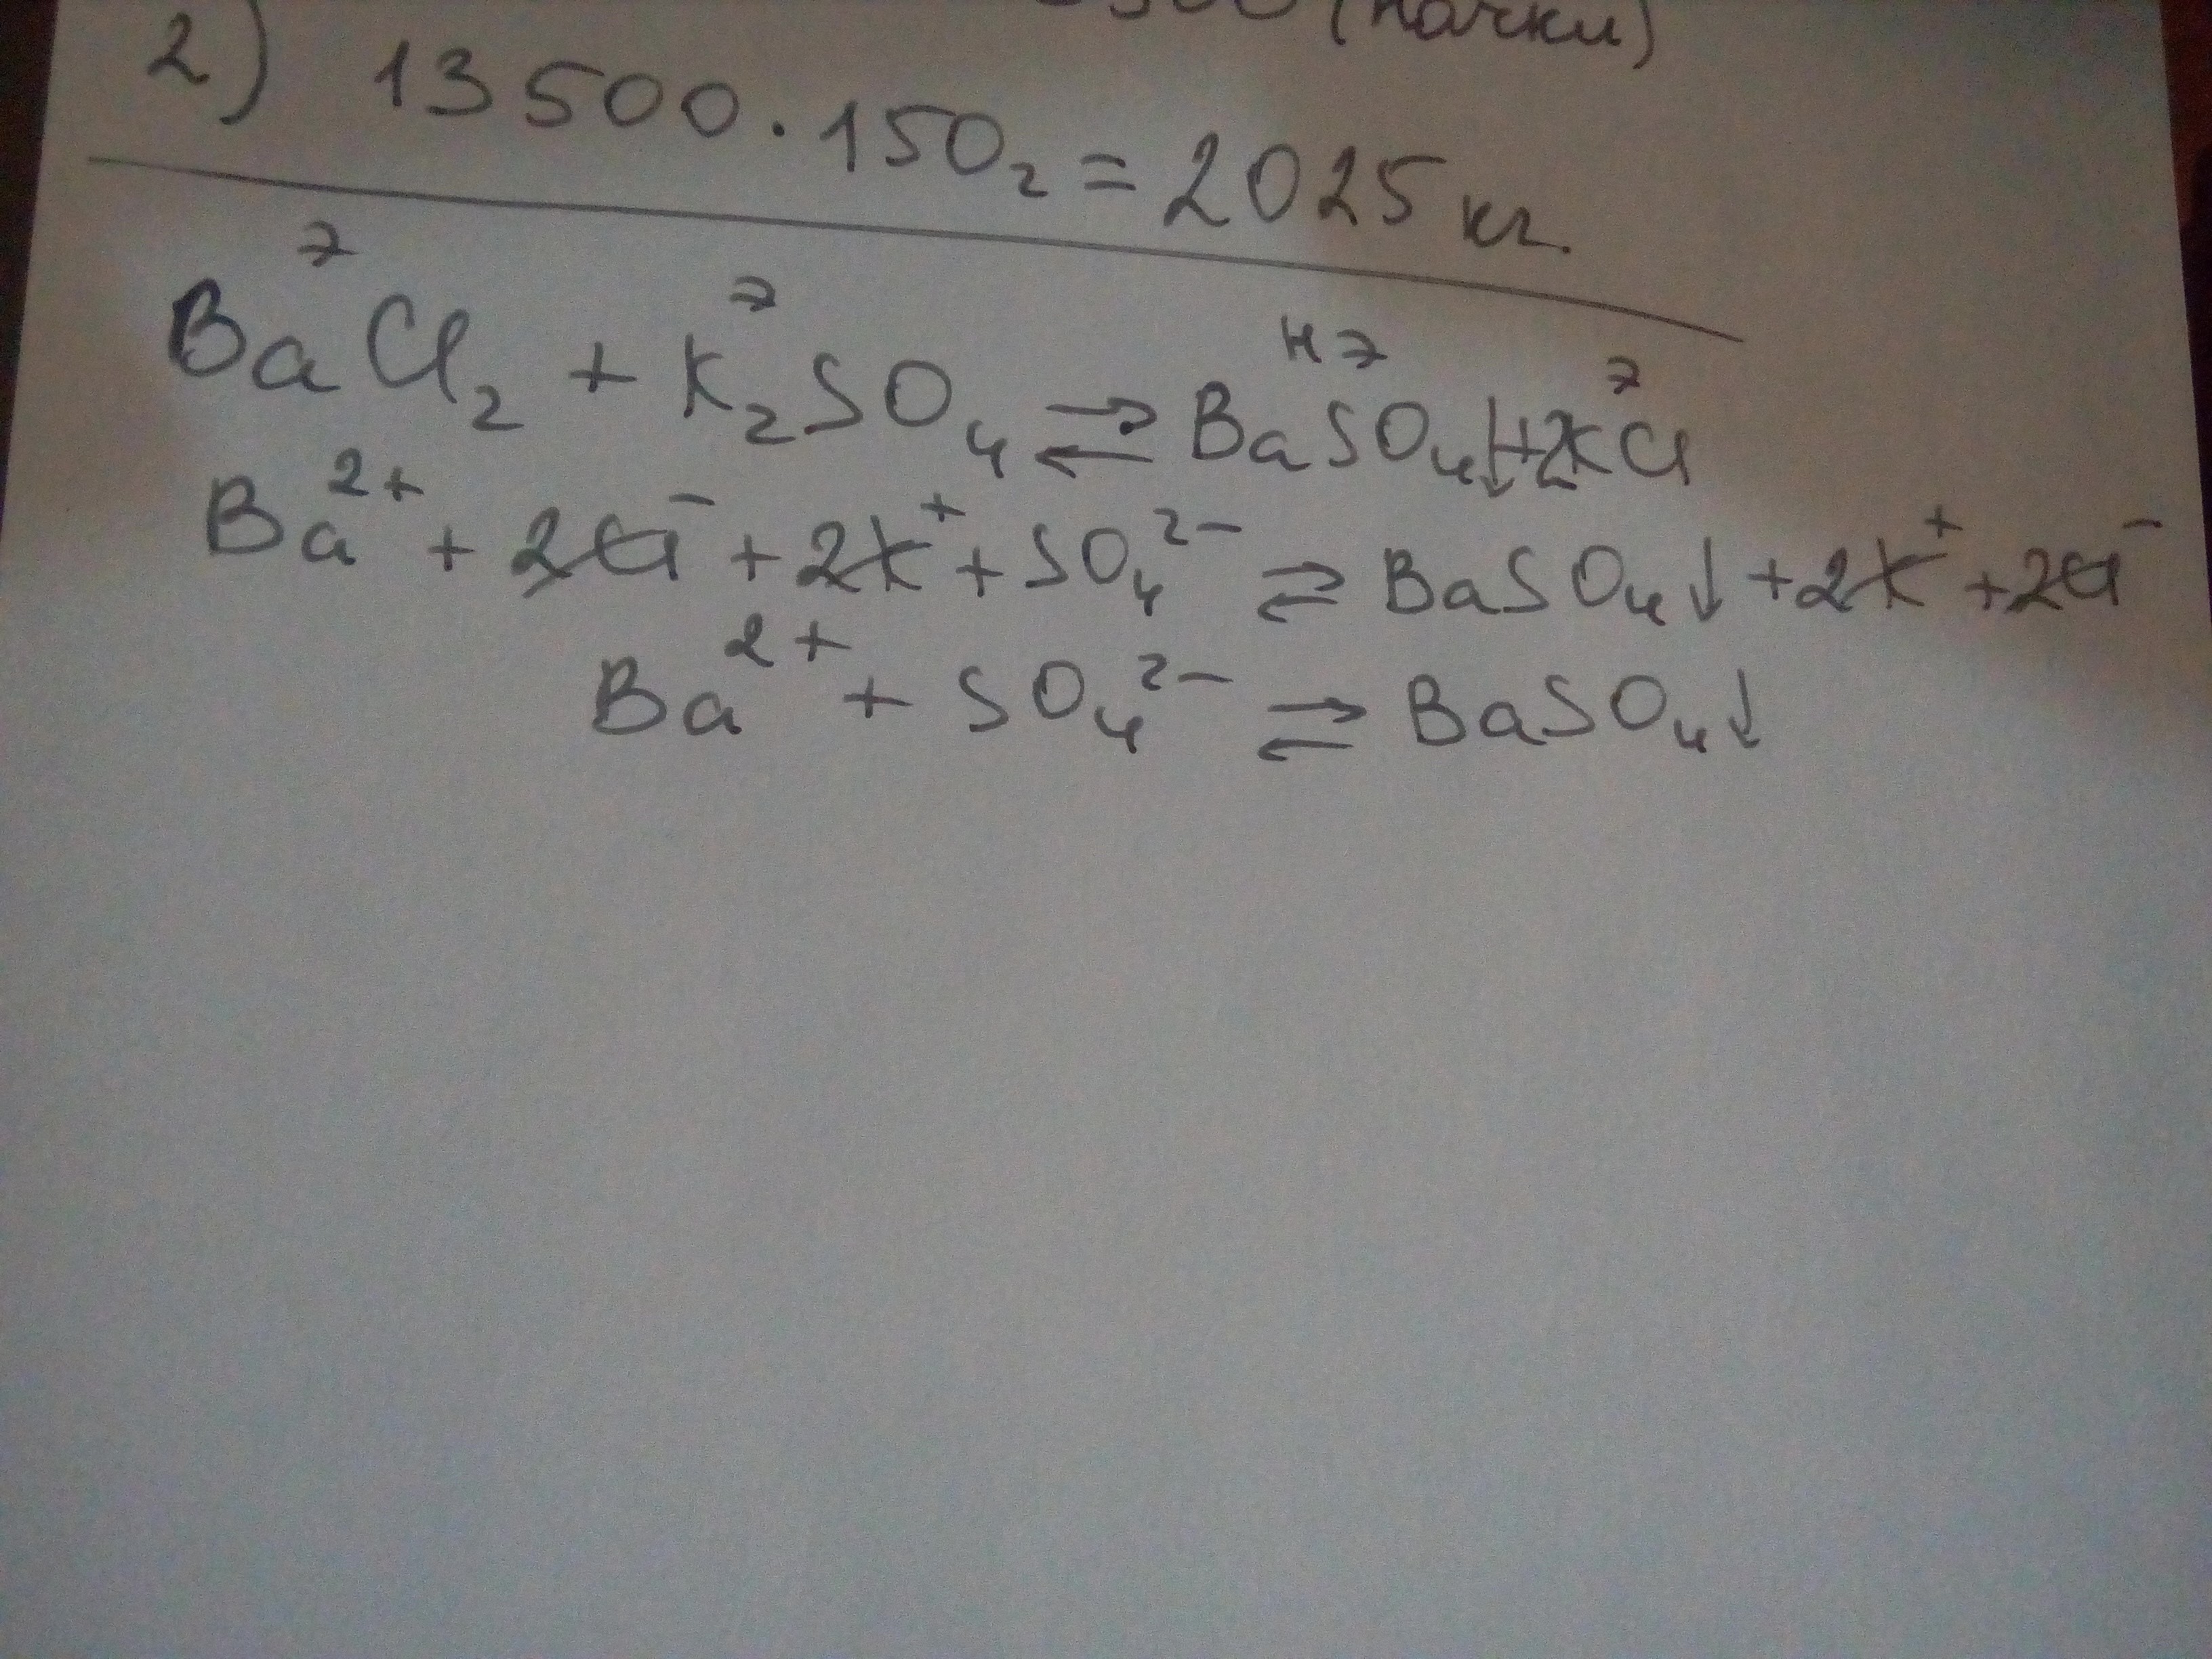 (пачки)
2) 13500 · 150г = 2025 кг.
э э нэ э
BaCl₂ + K₂SO₄ ⇄ BaSO₄↓ + 2KCl
Ba²⁺ + 2Cl⁻ + 2K⁺ + SO₄²⁻ ⇄ BaSO₄↓ + 2K⁺ + 2Cl⁻
Ba²⁺ + SO₄²⁻ ⇄ BaSO₄↓